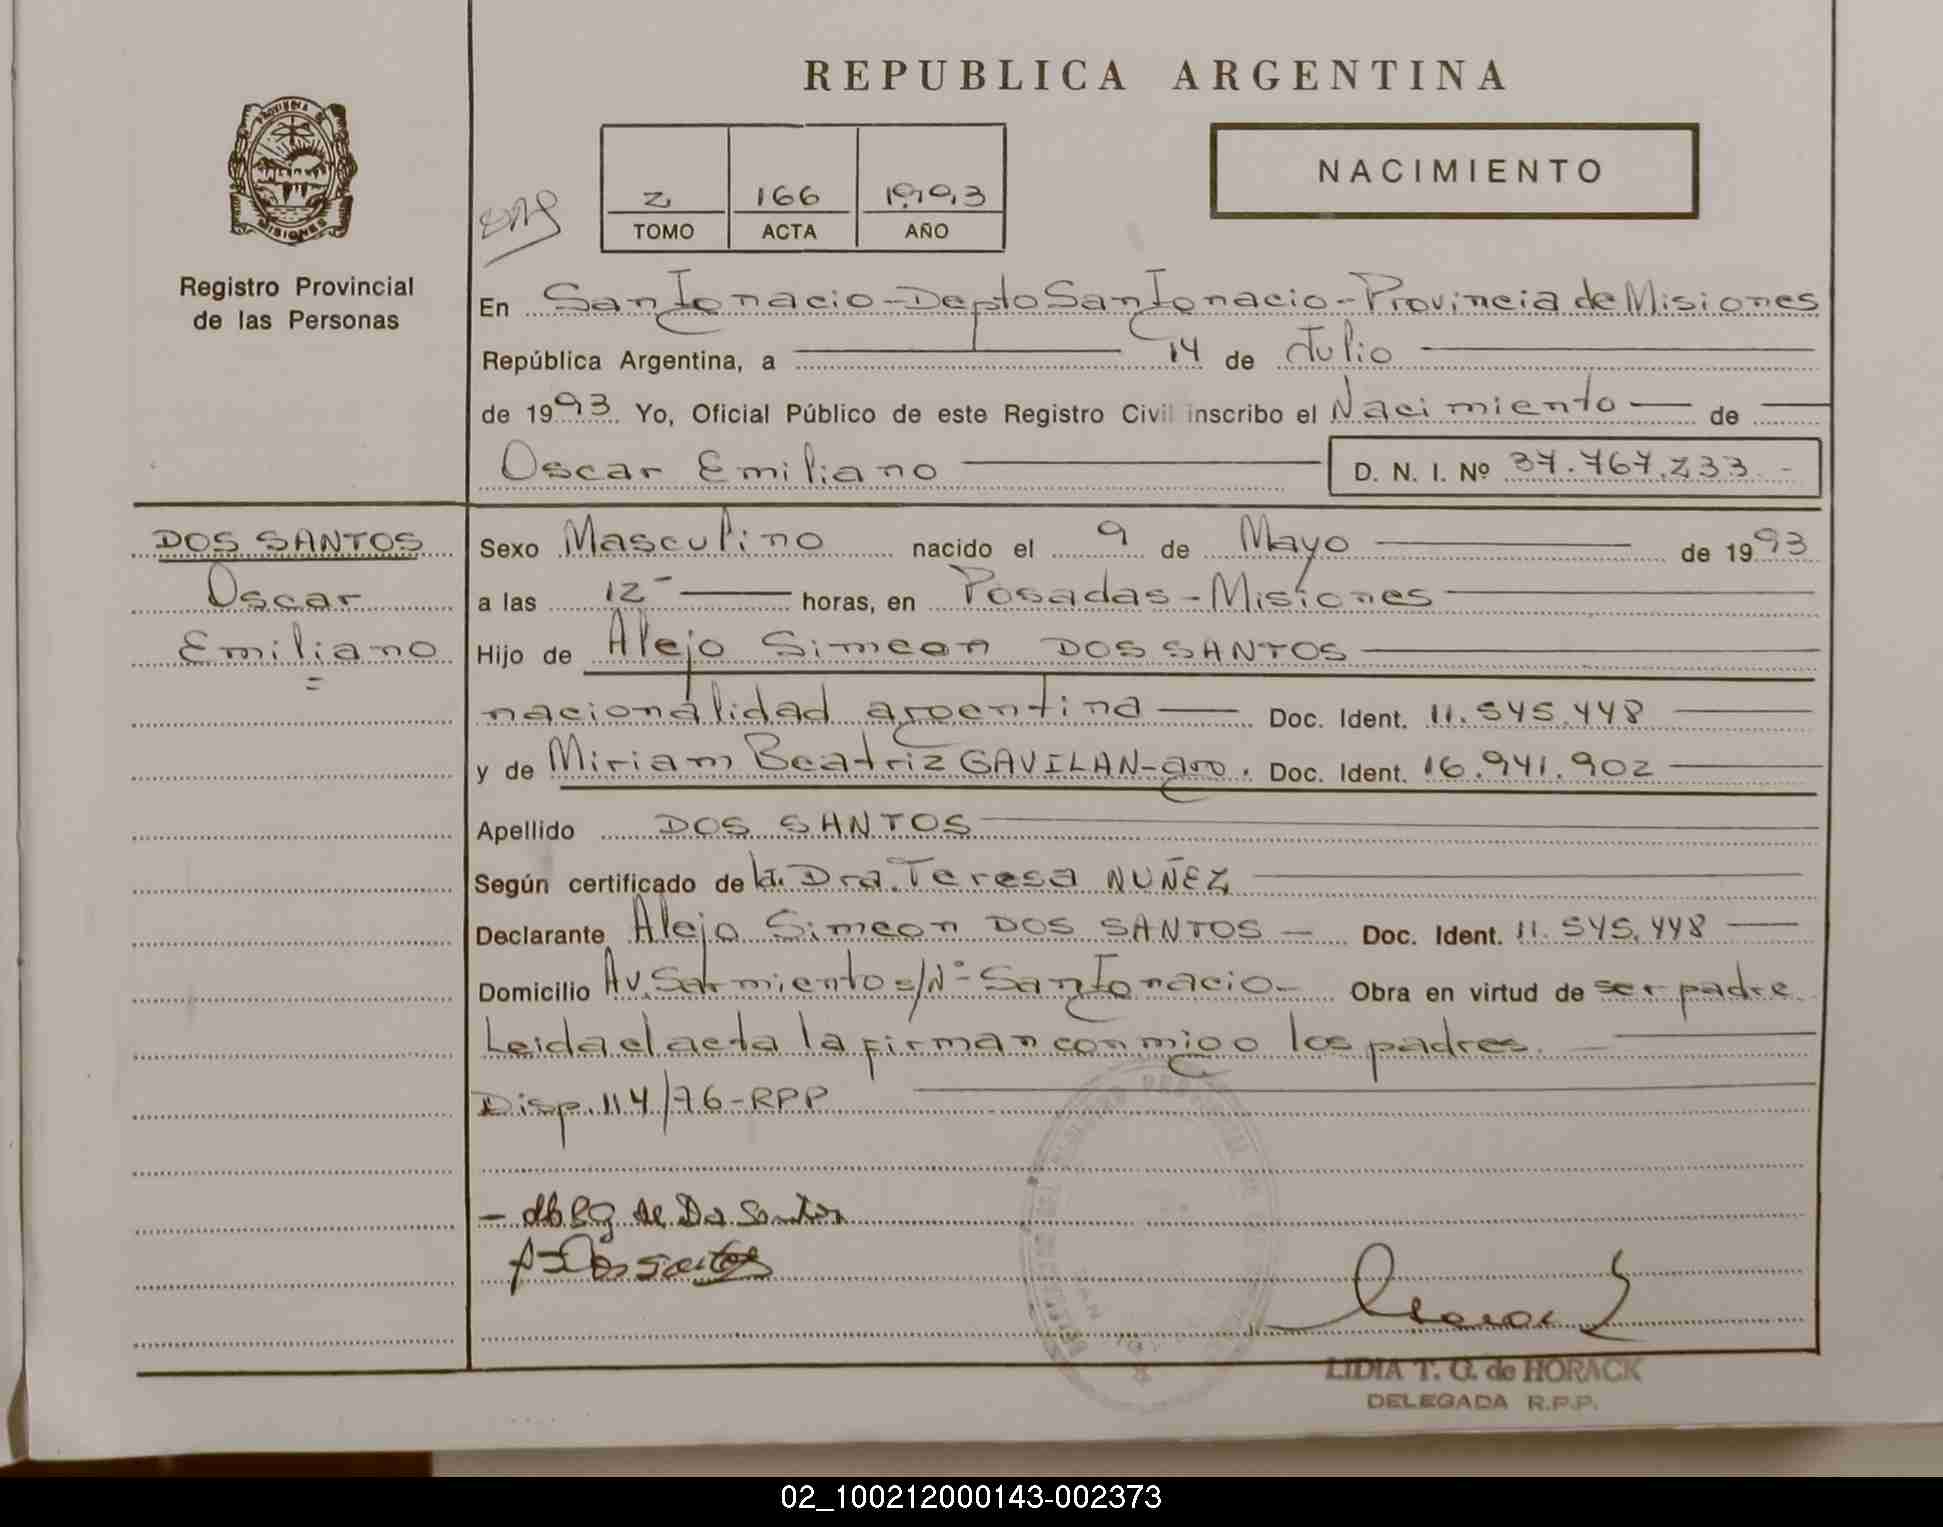 REPUBLICA ARGENTINA
PROVINCIA DE
MISIONES
Registro Provincial
de las Personas
2 166 1993
TOMO ACTA AÑO
NACIMIENTO
En San Ignacio - Depto San Ignacio - Provincia de Misiones
República Argentina, a 14 de Julio
de 1993 Yo, Oficial Público de este Registro Civil inscribo el Nacimiento de
Oscar Emiliano D. N. I. Nº 37.767.233 -
DOS SANTOS
Oscar
Emiliano
Sexo Masculino nacido el 9 de Mayo de 1993
a las 12 - horas, en Posadas - Misiones
Hijo de Alejo Simeon DOS SANTOS
nacionalidad argentina Doc. Ident. 11.545.448
y de Miriam Beatriz GAVILAN - arg. Doc. Ident. 16.941.902
Apellido DOS SANTOS
Según certificado de la Dra. Teresa NUÑEZ
Declarante Alejo Simeon DOS SANTOS - Doc. Ident. 11.545.448
Domicilio Av. Sarmiento s/Nº - San Ignacio - Obra en virtud de ser padre
Leida el acta la firman conmigo los padres.
Disp. 114/76 - RPP
de Dos Santos
Dos Santos
LIDIA T. G. de HORACK
DELEGADA R.P.P.
02_100212000143-002373